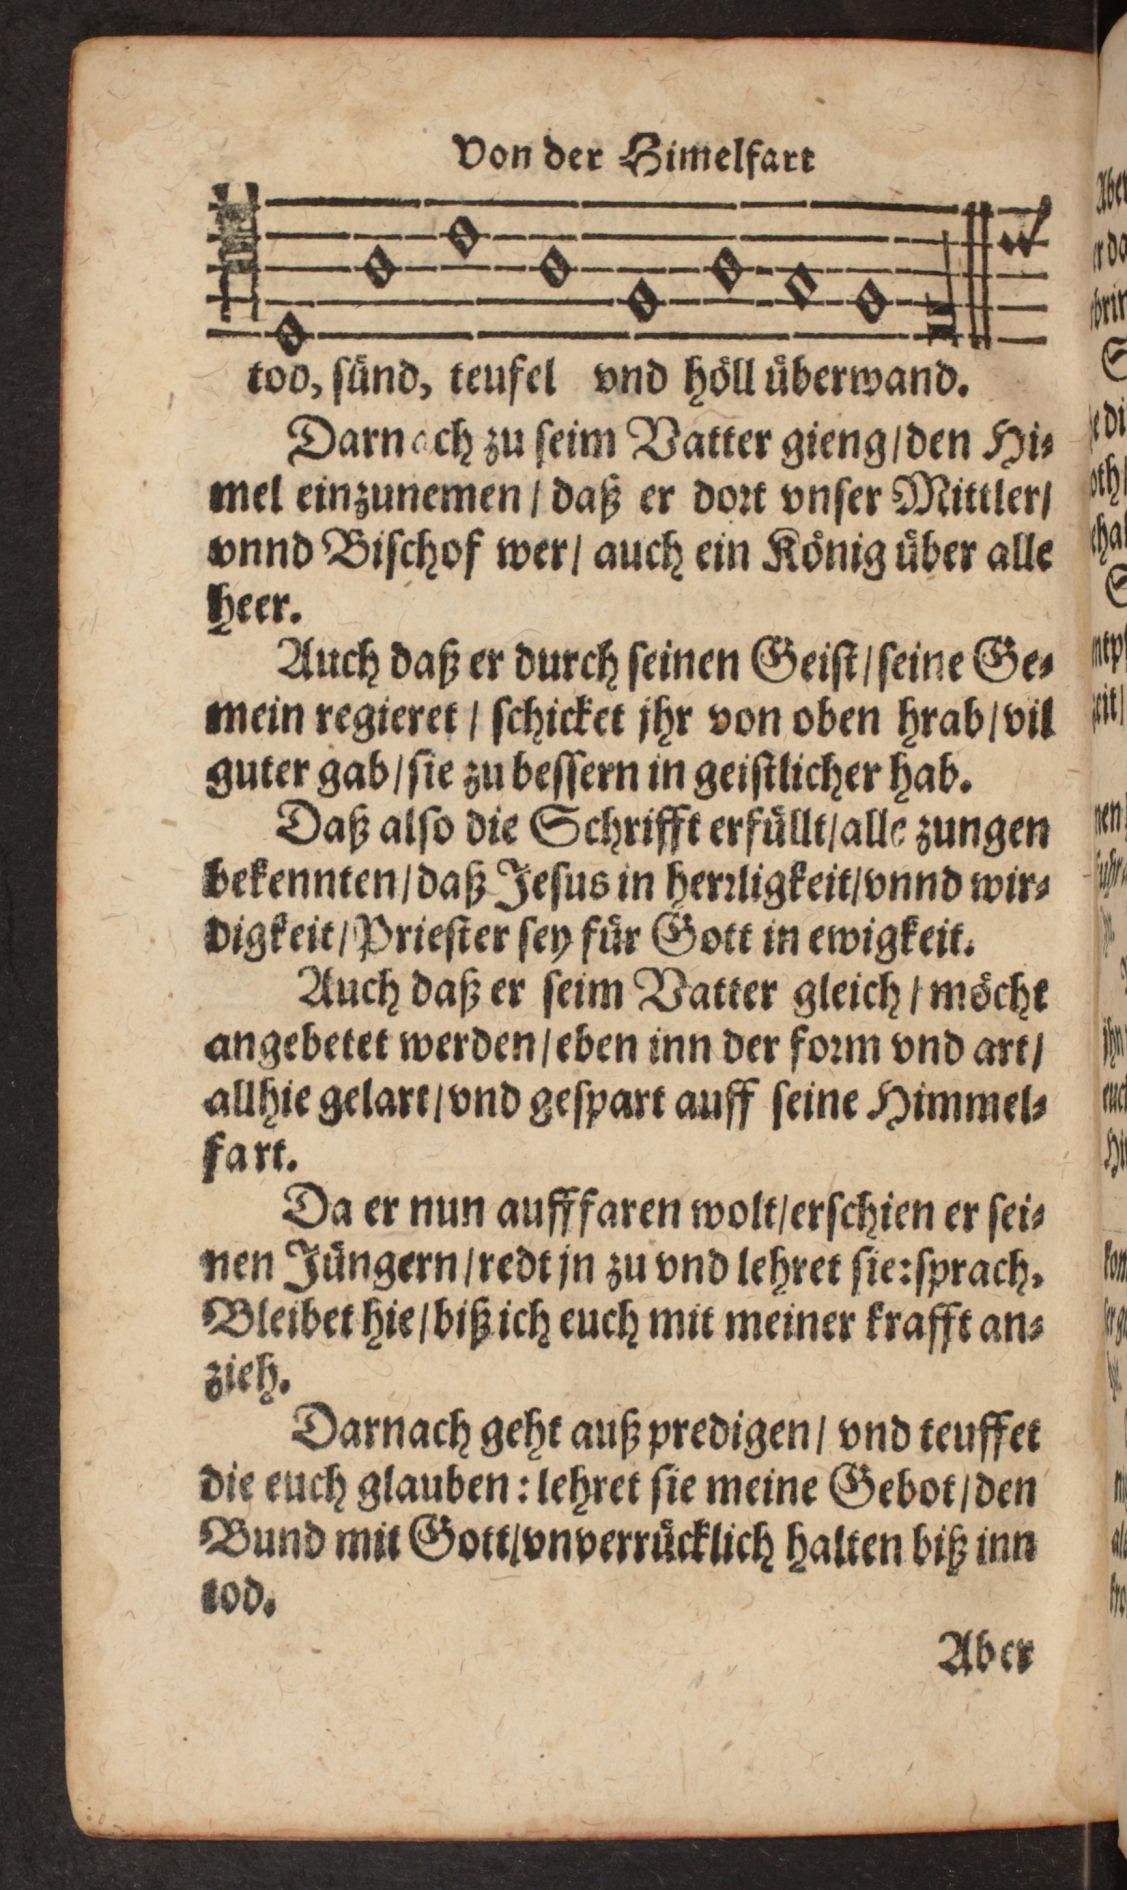 Von der Himelfart
tod, sünd, teufel vnd höll überwand.
Darnach zu seim Vatter gieng/den Hi⸗
mel einzunemen/ daß er dort vnser Mittler/
vnnd Bischof wer/ auch ein König über alle
heer.
Auch daß er durch seinen Geist/seine Ge⸗
mein regieret/ schicket jhr von oben hrab/vil
guter gab/sie zu bessern in geistlicher hab.
Daß also die Schrifft erfüllt/alle zungen
bekennten/daß Jesus in herrligkeit/vnnd wir⸗
digkeit/Priester sey für Gott in ewigkeit.
Auch daß er seim Vatter gleich/ möcht
angebetet werden/eben inn der form vnd art/
allhie gelart/vnd gespart auff seine Himmel⸗
fart.
Da er nun aufffaren wolt/erschien er sei⸗
nen Jüngern/redt jn zu vnd lehret sie:sprach,
Bleibet hie/biß ich euch mit meiner krafft an⸗
zieh.
Darnach geht auß predigen/ vnd teuffet
die euch glauben: lehret sie meine Gebot/den
Bund mit Gott/vnverrücklich halten biß inn
tod.
Aber